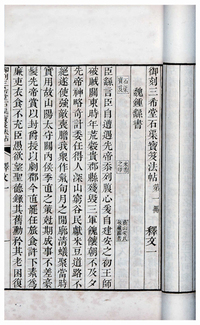 御刻三希堂石渠寶笈法帖 第一冊 釋文
魏鍾繇書
臣繇言臣自遭遇先帝忝列腹心爰自建安之初王師
破賊關東時年荒穀貴郡縣殘毀三軍餽饟朝不及夕
先帝神略奇計委任得人深山窮谷民獻米豆道路不
絕遂使強敵喪膽我眾作氣旬月之間廓清蟻聚當時
實用故山陽太守關內侯季直之策剋期成事不差豪
髮先帝賞以封爵授以劇郡今直罷任旅食許下素為
廉吏衣食不充臣愚欲望聖德錄其舊勳矜其老困復